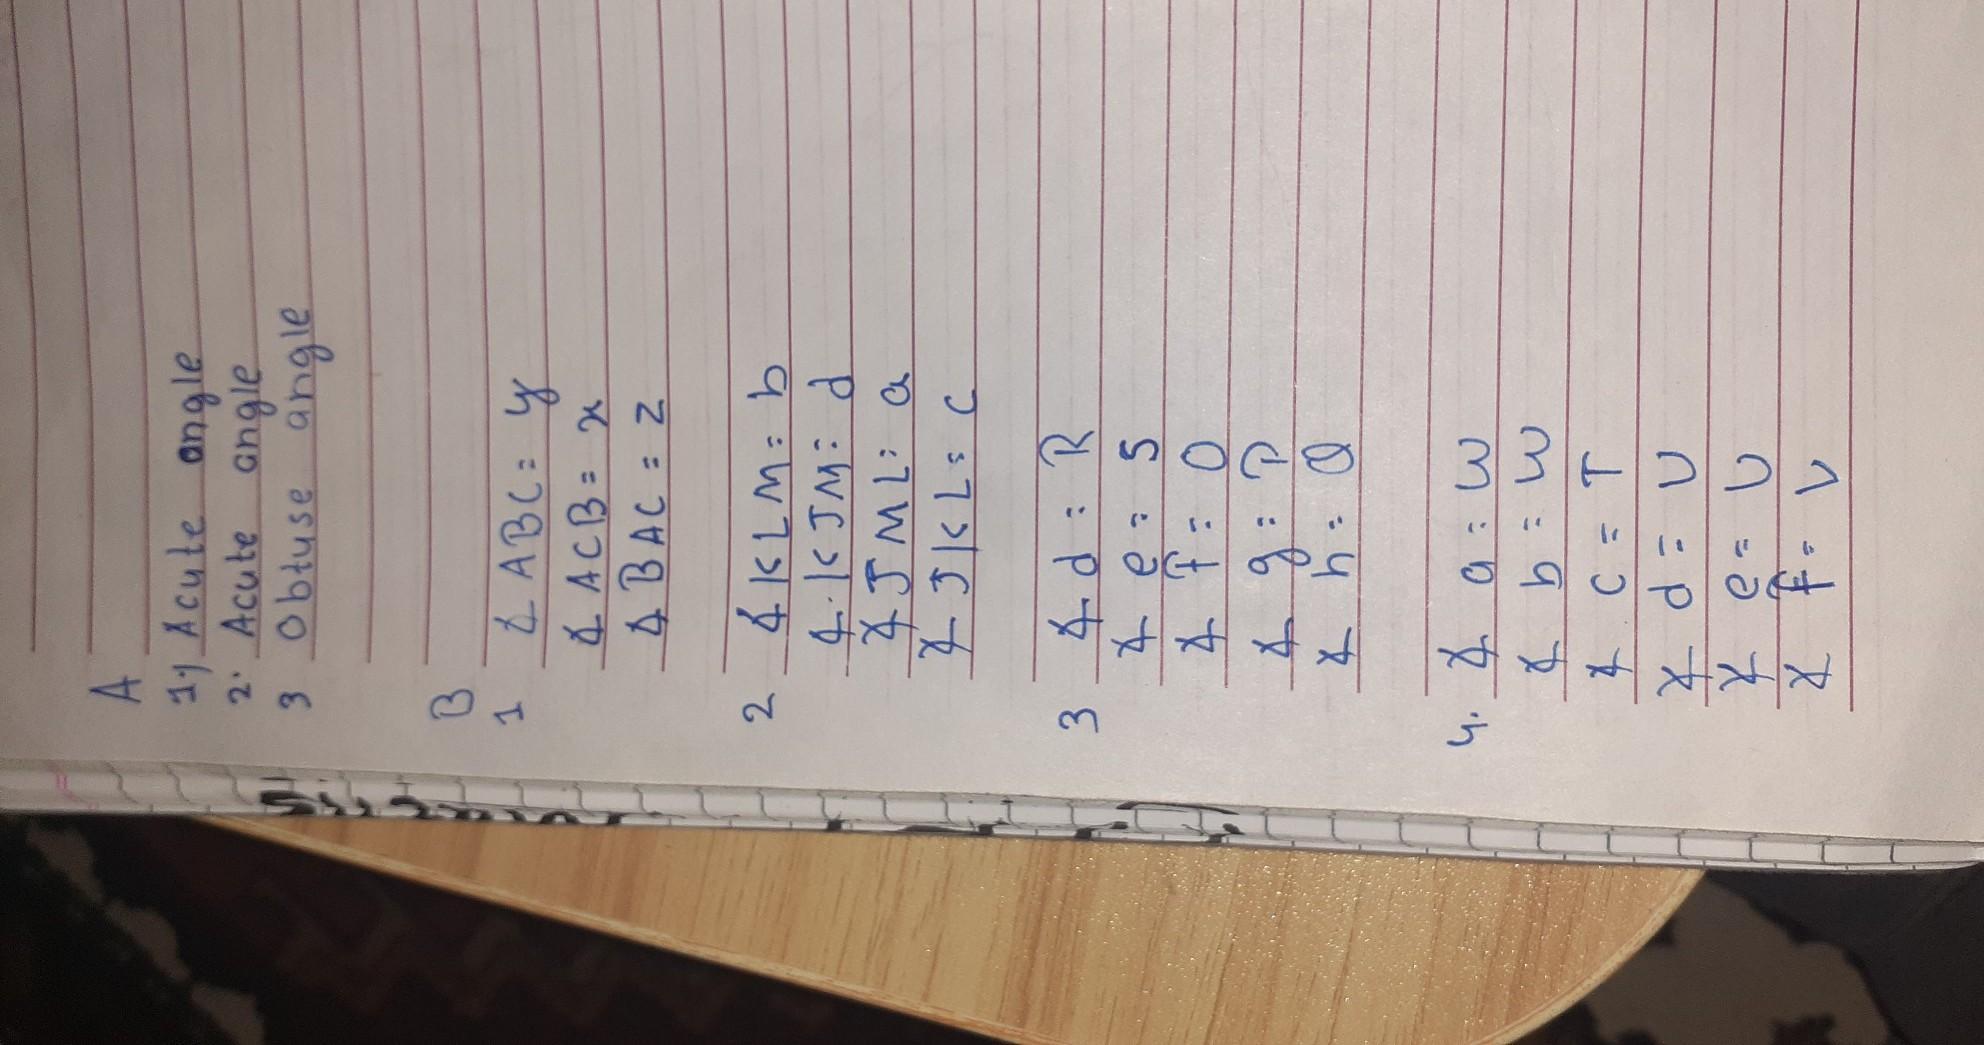 A
1.) Acute angle
2. Acute angle
3 Obtuse angle
B
1 ∡ ABC = y
∡ ACB = x
∡ BAC = z
2 ∡ KLM = b
∡ KJM = d
∡ JML = a
∡ JKL = c
3 ∡ d = R
∡ e = S
∡ f = O
∡ g = P
∡ h = Q
4. ∡ a = W
∡ b = W
∡ c = T
∡ d = U
∡ e = U
∡ f = V